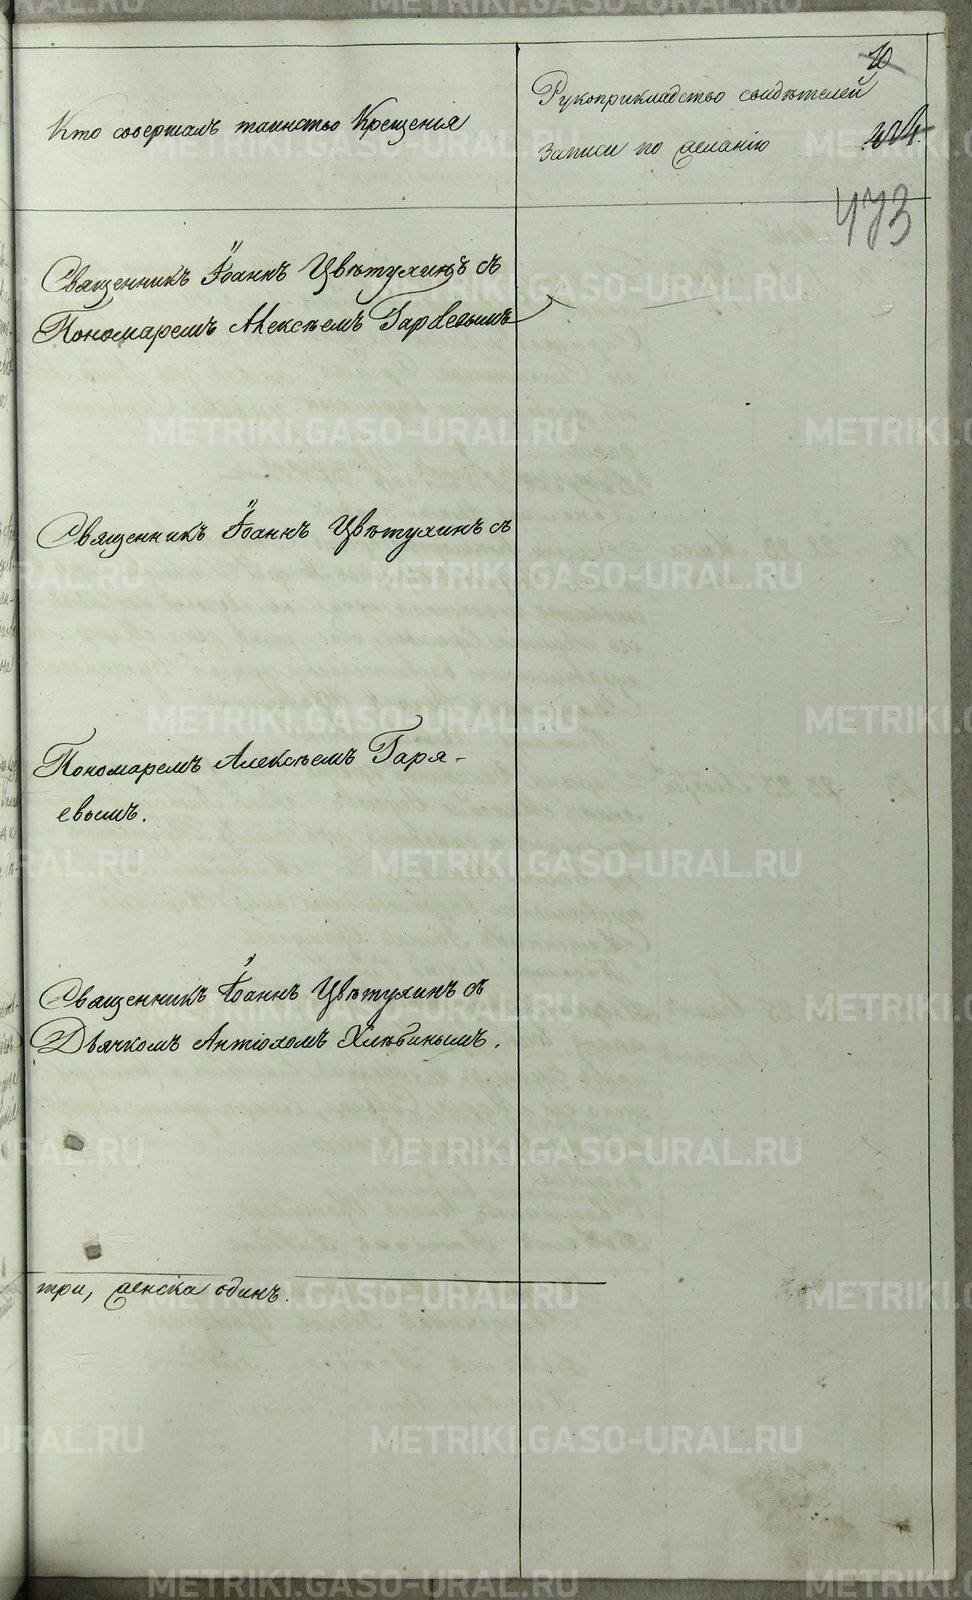 10
Кто совершалъ таинство Крещенія
Рукоприкладство свидѣтелей
записи по желанію
473
Священникъ Іоаннъ Цвѣтухинъ съ
Пономаремъ Алексѣемъ Гаревымъ
Священникъ Іоаннъ Цвѣтухинъ съ
Пономаремъ Алексѣемъ Гаря-
евымъ.
Священникъ Іоаннъ Цвѣтухинъ съ
Дьячкомъ Антіохомъ Хлѣбинымъ.
три, женска одинъ.
METRIKI.GASO-URAL.RU